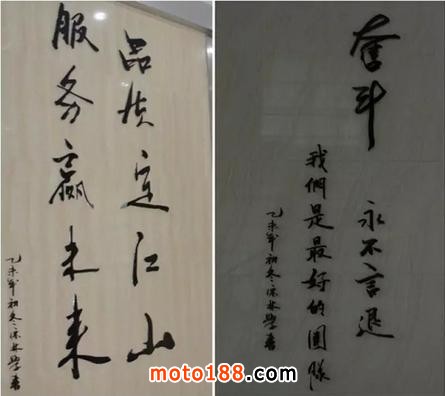 品质定江山
服务赢未来
乙未年初冬
奮斗
永不言退
我們是最好的團隊
乙未年初冬
moto188.com